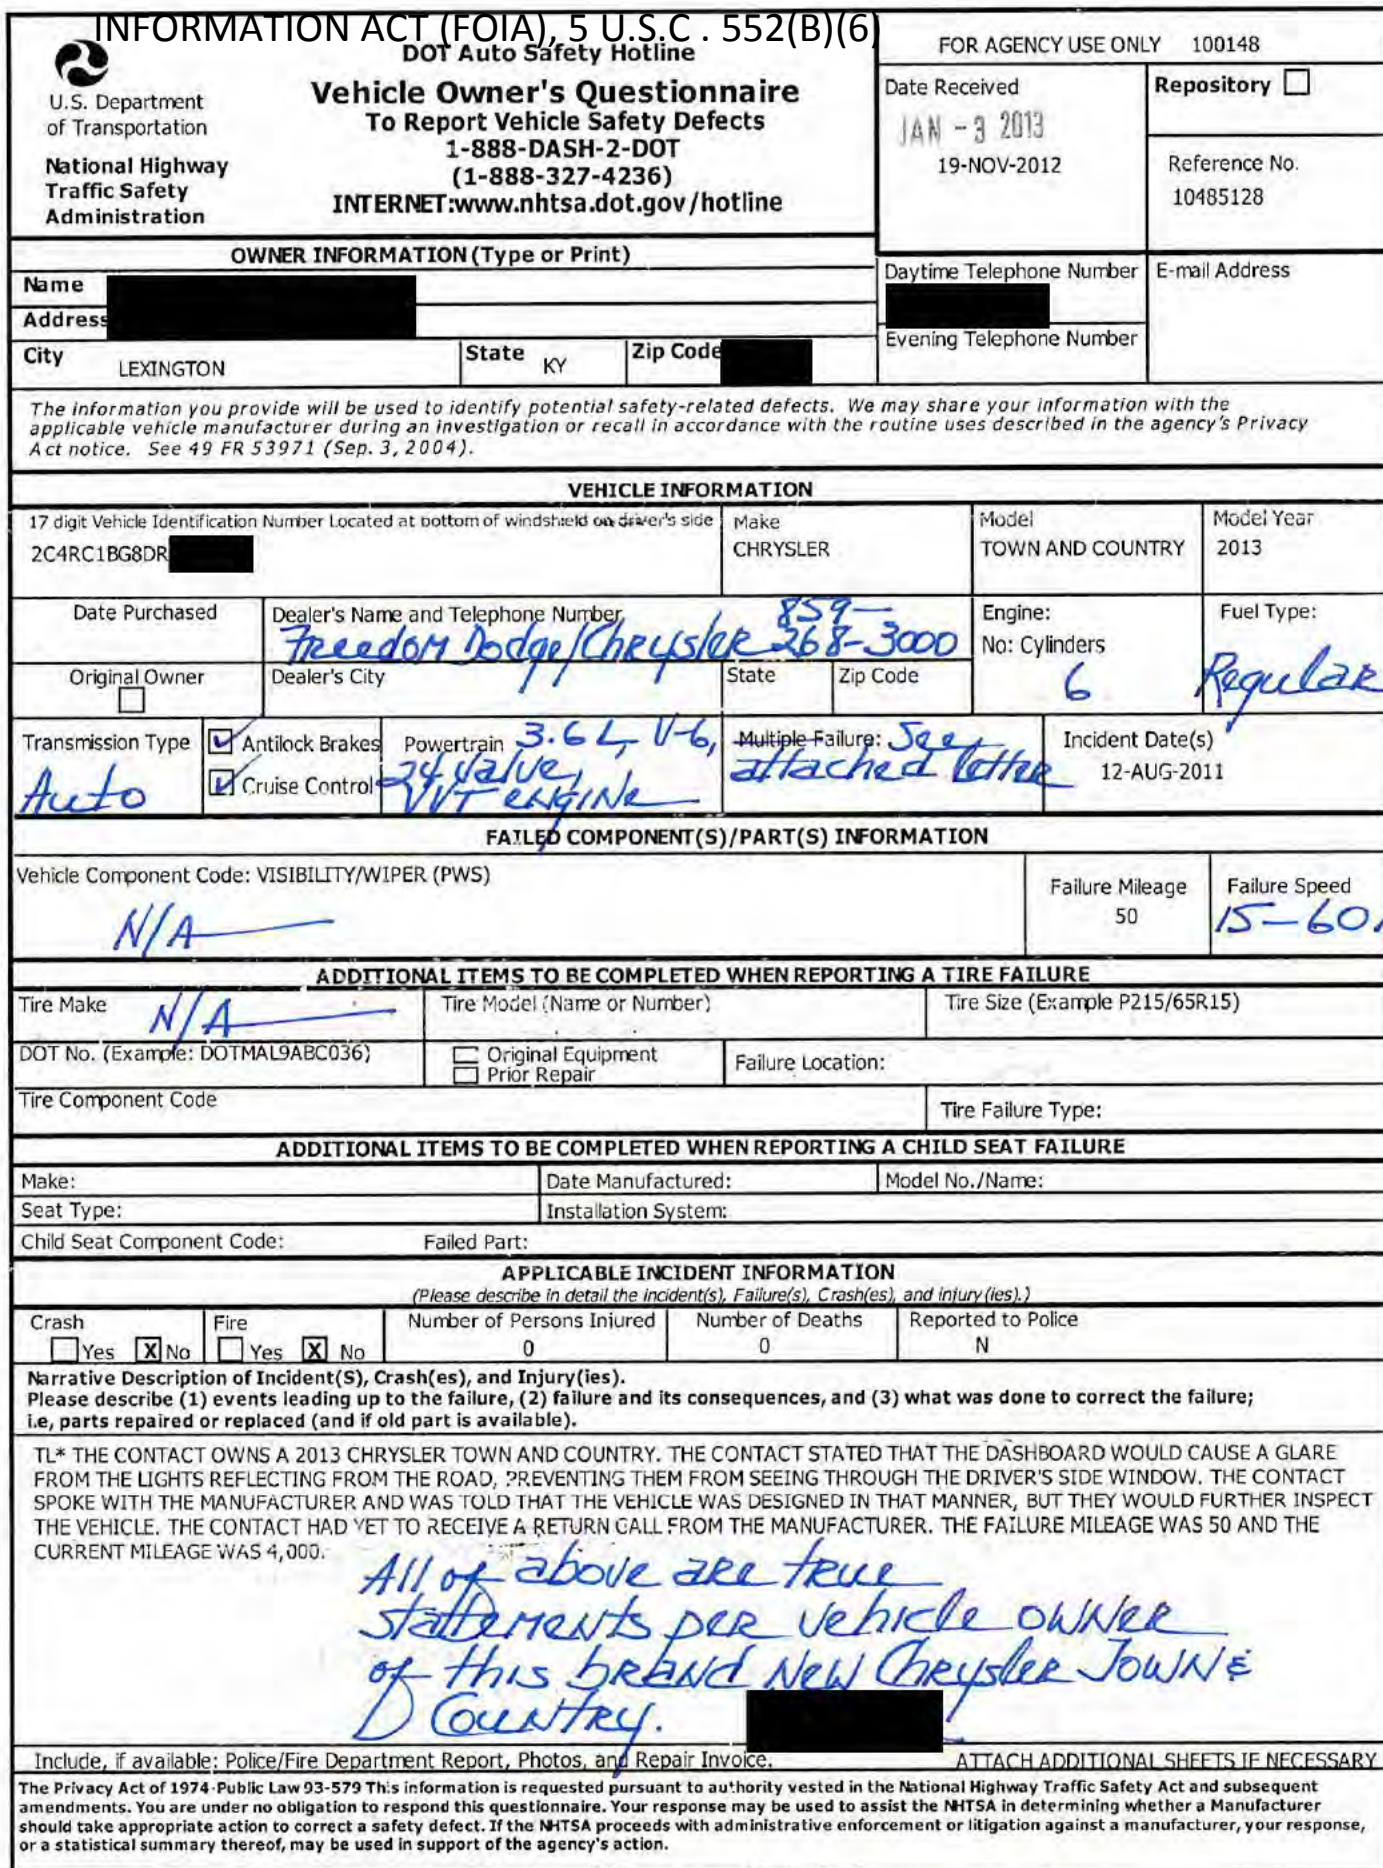 INFORMATION ACT (FOIA), 5 U.S.C . 552(B)(6)
U.S. Department
of Transportation
National Highway
Traffic Safety
Administration
DOT Auto Safety Hotline
Vehicle Owner's Questionnaire
To Report Vehicle Safety Defects
1-888-DASH-2-DOT
(1-888-327-4236)
INTERNET:www.nhtsa.dot.gov/hotline
FOR AGENCY USE ONLY 100148
Date Received
JAN - 3 2013
19-NOV-2012
Repository
Reference No.
10485128
OWNER INFORMATION (Type or Print)
Name
Address
City LEXINGTON State KY Zip Code
Daytime Telephone Number
Evening Telephone Number
E-mail Address
The information you provide will be used to identify potential safety-related defects. We may share your information with the
applicable vehicle manufacturer during an investigation or recall in accordance with the routine uses described in the agency's Privacy
Act notice. See 49 FR 53971 (Sep. 3, 2004).
VEHICLE INFORMATION
17 digit Vehicle Identification Number Located at bottom of windshield on driver's side
2C4RC1BG8DR
Make
CHRYSLER
Model
TOWN AND COUNTRY
Model Year
2013
Date Purchased
Dealer's Name and Telephone Number
859-
Freedom Dodge/Chrysler 268-3000
Engine:
No: Cylinders
6
Fuel Type:
Regular
Original Owner
Dealer's City
State
Zip Code
Transmission Type
Auto
Antilock Brakes
Cruise Control
Powertrain 3.6 L, V-6,
24 valve,
VVT engine
Multiple Failure: See
attached letter
Incident Date(s)
12-AUG-2011
FAILED COMPONENT(S)/PART(S) INFORMATION
Vehicle Component Code: VISIBILITY/WIPER (PWS)
N/A
Failure Mileage
50
Failure Speed
15-60
ADDITIONAL ITEMS TO BE COMPLETED WHEN REPORTING A TIRE FAILURE
Tire Make N/A
Tire Model (Name or Number)
Tire Size (Example P215/65R15)
DOT No. (Example: DOTMAL9ABC036)
Original Equipment
Prior Repair
Failure Location:
Tire Component Code
Tire Failure Type:
ADDITIONAL ITEMS TO BE COMPLETED WHEN REPORTING A CHILD SEAT FAILURE
Make: Date Manufactured: Model No./Name:
Seat Type: Installation System:
Child Seat Component Code: Failed Part:
APPLICABLE INCIDENT INFORMATION
(Please describe in detail the incident(s), Failure(s), Crash(es), and injury(ies).)
Crash
Yes X No
Fire
Yes X No
Number of Persons Injured
0
Number of Deaths
0
Reported to Police
N
Narrative Description of Incident(S), Crash(es), and Injury(ies).
Please describe (1) events leading up to the failure, (2) failure and its consequences, and (3) what was done to correct the failure;
i.e, parts repaired or replaced (and if old part is available).
TL* THE CONTACT OWNS A 2013 CHRYSLER TOWN AND COUNTRY. THE CONTACT STATED THAT THE DASHBOARD WOULD CAUSE A GLARE
FROM THE LIGHTS REFLECTING FROM THE ROAD, PREVENTING THEM FROM SEEING THROUGH THE DRIVER'S SIDE WINDOW. THE CONTACT
SPOKE WITH THE MANUFACTURER AND WAS TOLD THAT THE VEHICLE WAS DESIGNED IN THAT MANNER, BUT THEY WOULD FURTHER INSPECT
THE VEHICLE. THE CONTACT HAD YET TO RECEIVE A RETURN CALL FROM THE MANUFACTURER. THE FAILURE MILEAGE WAS 50 AND THE
CURRENT MILEAGE WAS 4,000.
All of above are true
statements per vehicle owner
of this brand new Chrysler Town &
Country.
Include, if available: Police/Fire Department Report, Photos, and Repair Invoice. ATTACH ADDITIONAL SHEETS IF NECESSARY
The Privacy Act of 1974-Public Law 93-579 This information is requested pursuant to authority vested in the National Highway Traffic Safety Act and subsequent
amendments. You are under no obligation to respond this questionnaire. Your response may be used to assist the NHTSA in determining whether a Manufacturer
should take appropriate action to correct a safety defect. If the NHTSA proceeds with administrative enforcement or litigation against a manufacturer, your response,
or a statistical summary thereof, may be used in support of the agency's action.